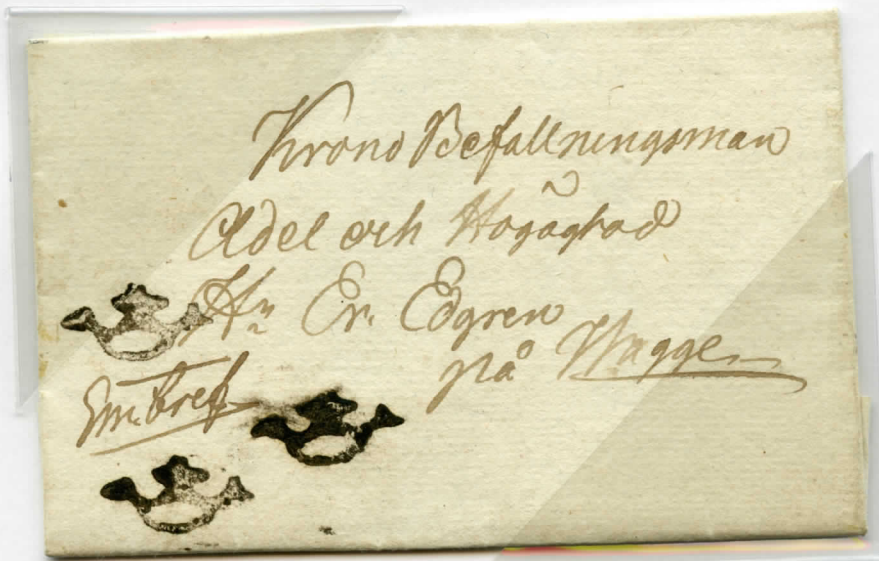 Krono Befallningsman
Adel och Högagtad
Hr Er. Edgren
på Wagge
Em. bref